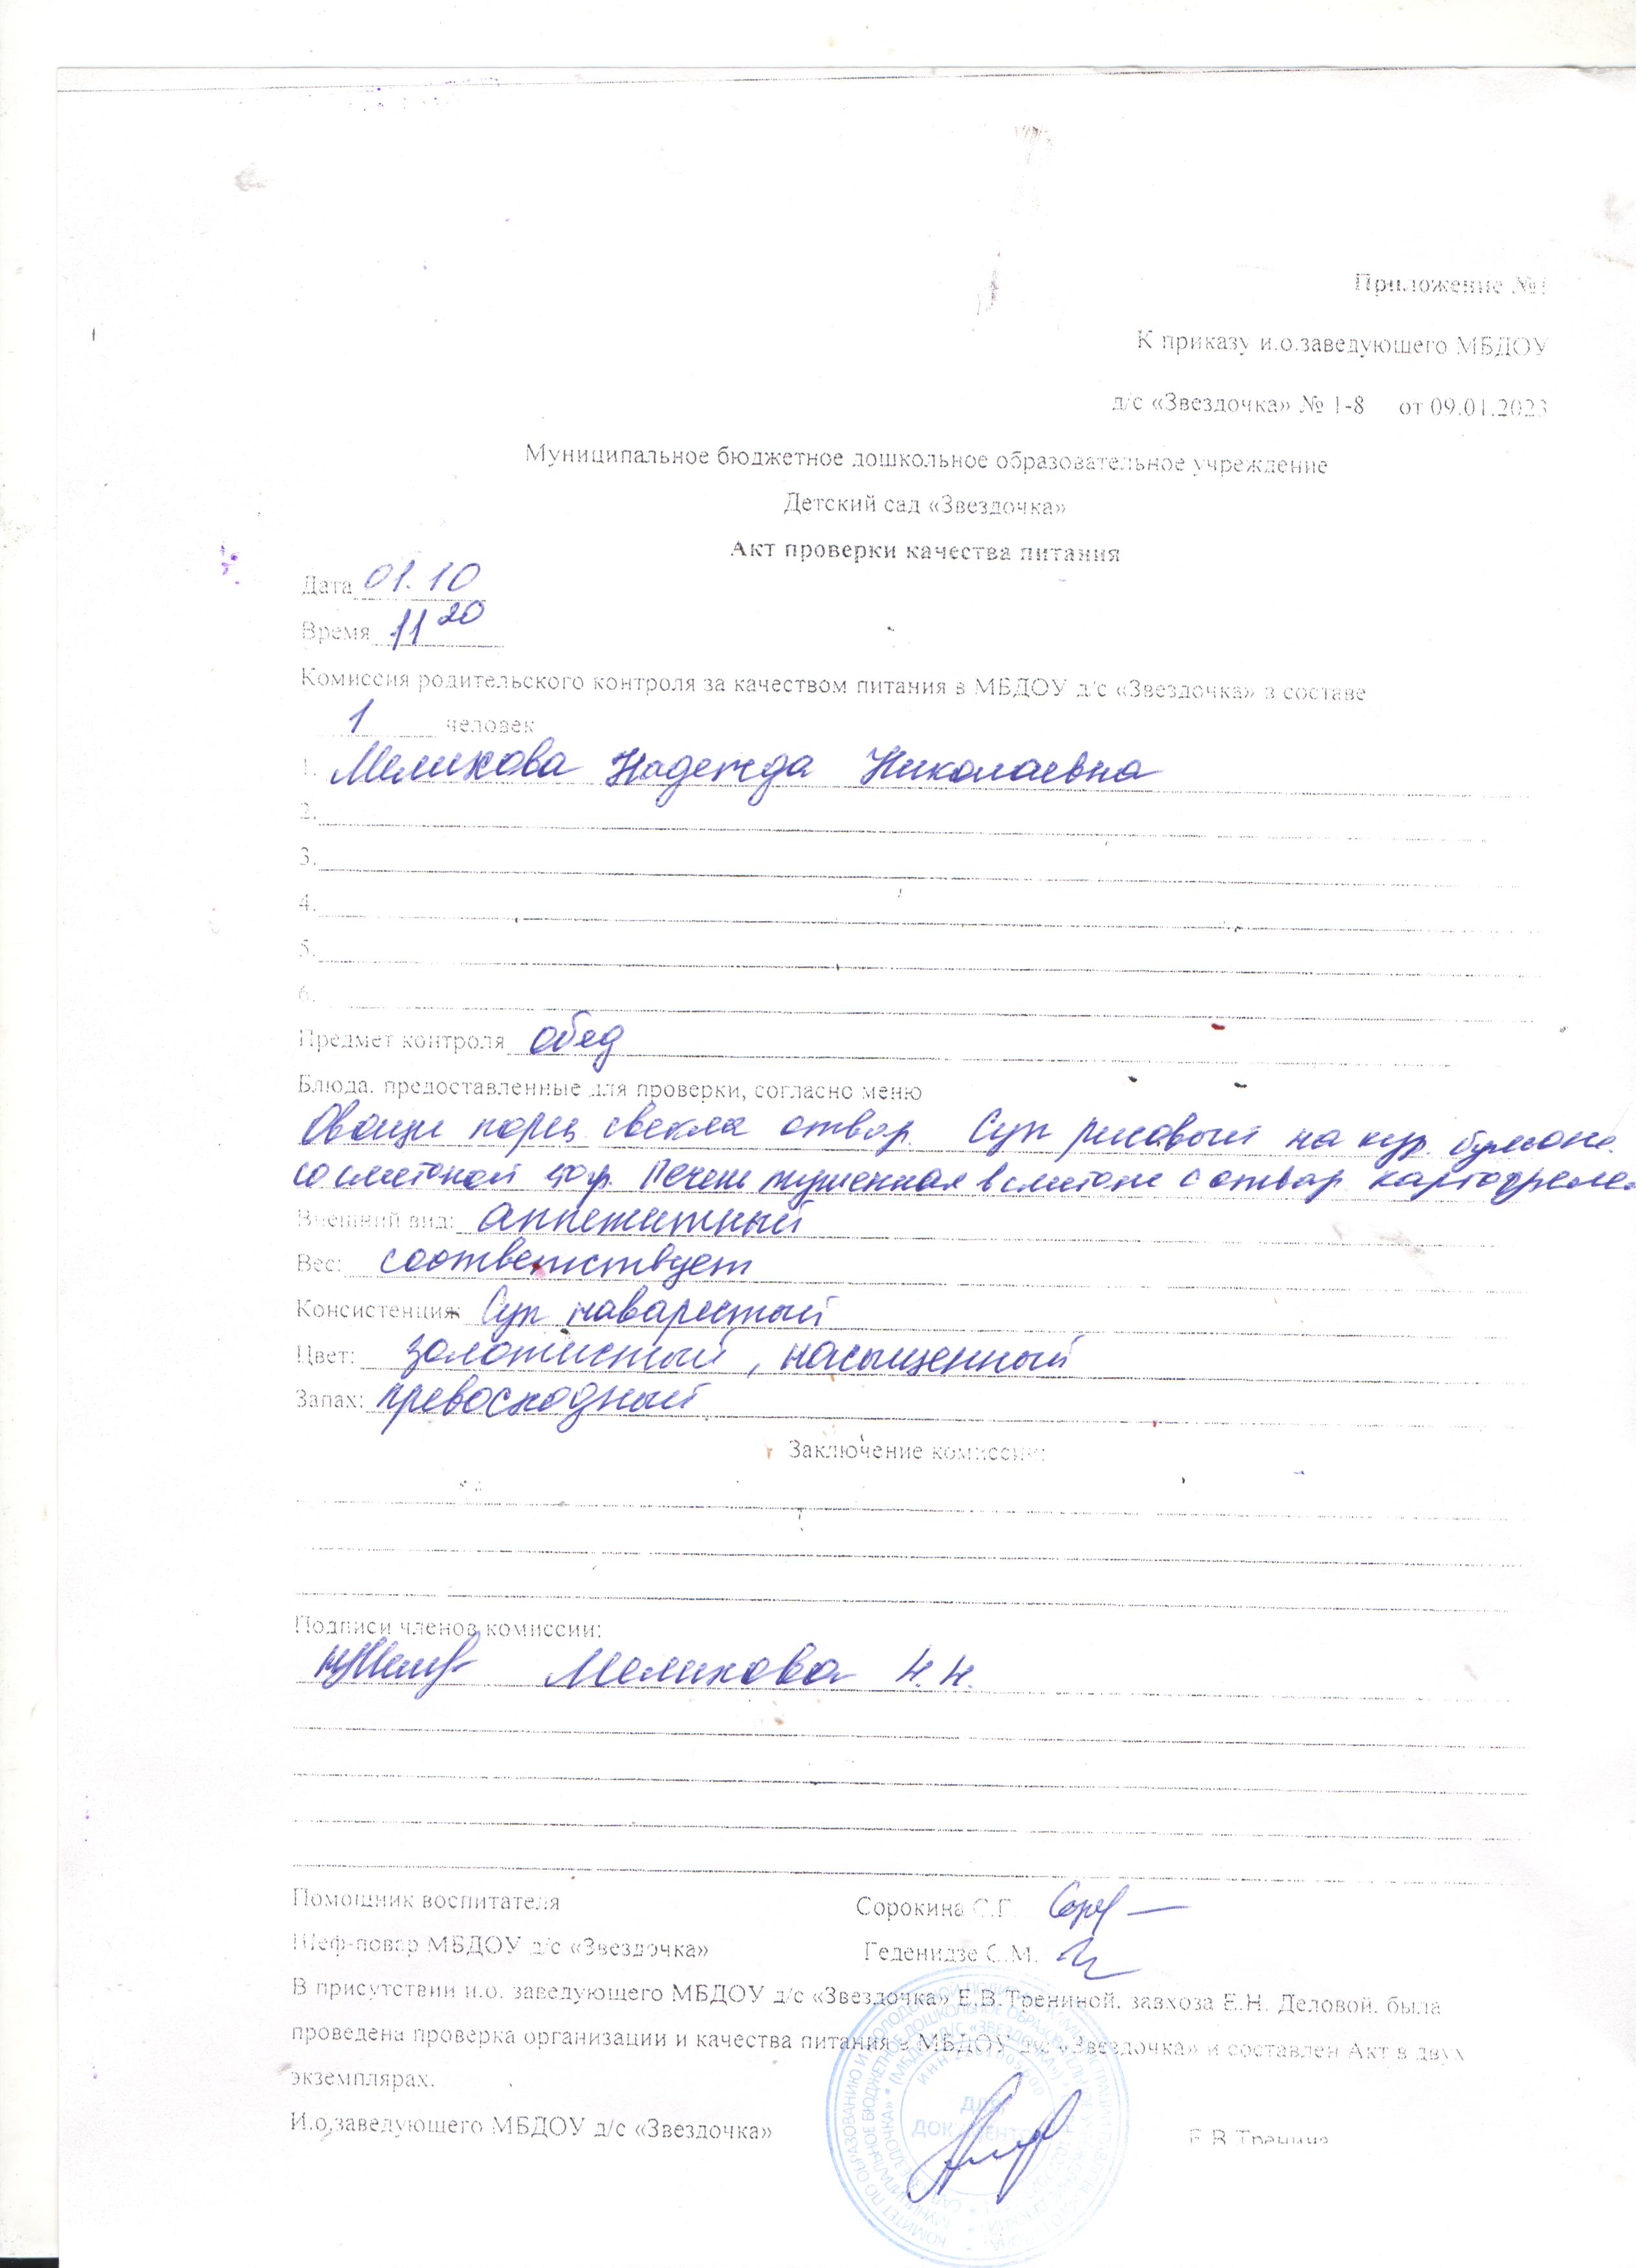 Приложение №1
К приказу и.о.заведующего МБДОУ
д/с «Звездочка» № 1-8 от 09.01.2023
Муниципальное бюджетное дошкольное образовательное учреждение
Детский сад «Звездочка»
Акт проверки качества питания
Дата 01.10
Время 11 20
Комиссия родительского контроля за качеством питания в МБДОУ д/с «Звездочка» в составе
1 человек
1. Меликова Надежда Николаевна
2.
3.
4.
5.
6.
Предмет контроля обед
Блюда, предоставленные для проверки, согласно меню
Овощи порц. свекла отвар. Суп рисовый на кур. бульоне
со сметаной Печень тушенная в сметане с отвар. картофелем
Внешний вид: аппетитный
Вес: соответствует
Консистенция: Суп наваристый
Цвет: золотистый, насыщенный
Запах: превосходный
Заключение комиссии:
Подписи членов комиссии:
Меликова Н.Н.
Помощник воспитателя Сорокина С.Г.
Шеф-повар МБДОУ д/с «Звездочка» Геденидзе С.М.
В присутствии и.о. заведующего МБДОУ д/с «Звездочка» Е.В.Трениной, завхоза Е.Н. Деловой, была
проведена проверка организации и качества питания в МБДОУ д/с «Звездочка» и составлен Акт в двух
экземплярах.
И.о.заведующего МБДОУ д/с «Звездочка» Е.В.Тренина
ДЛЯ
ДОКУМЕНТОВ